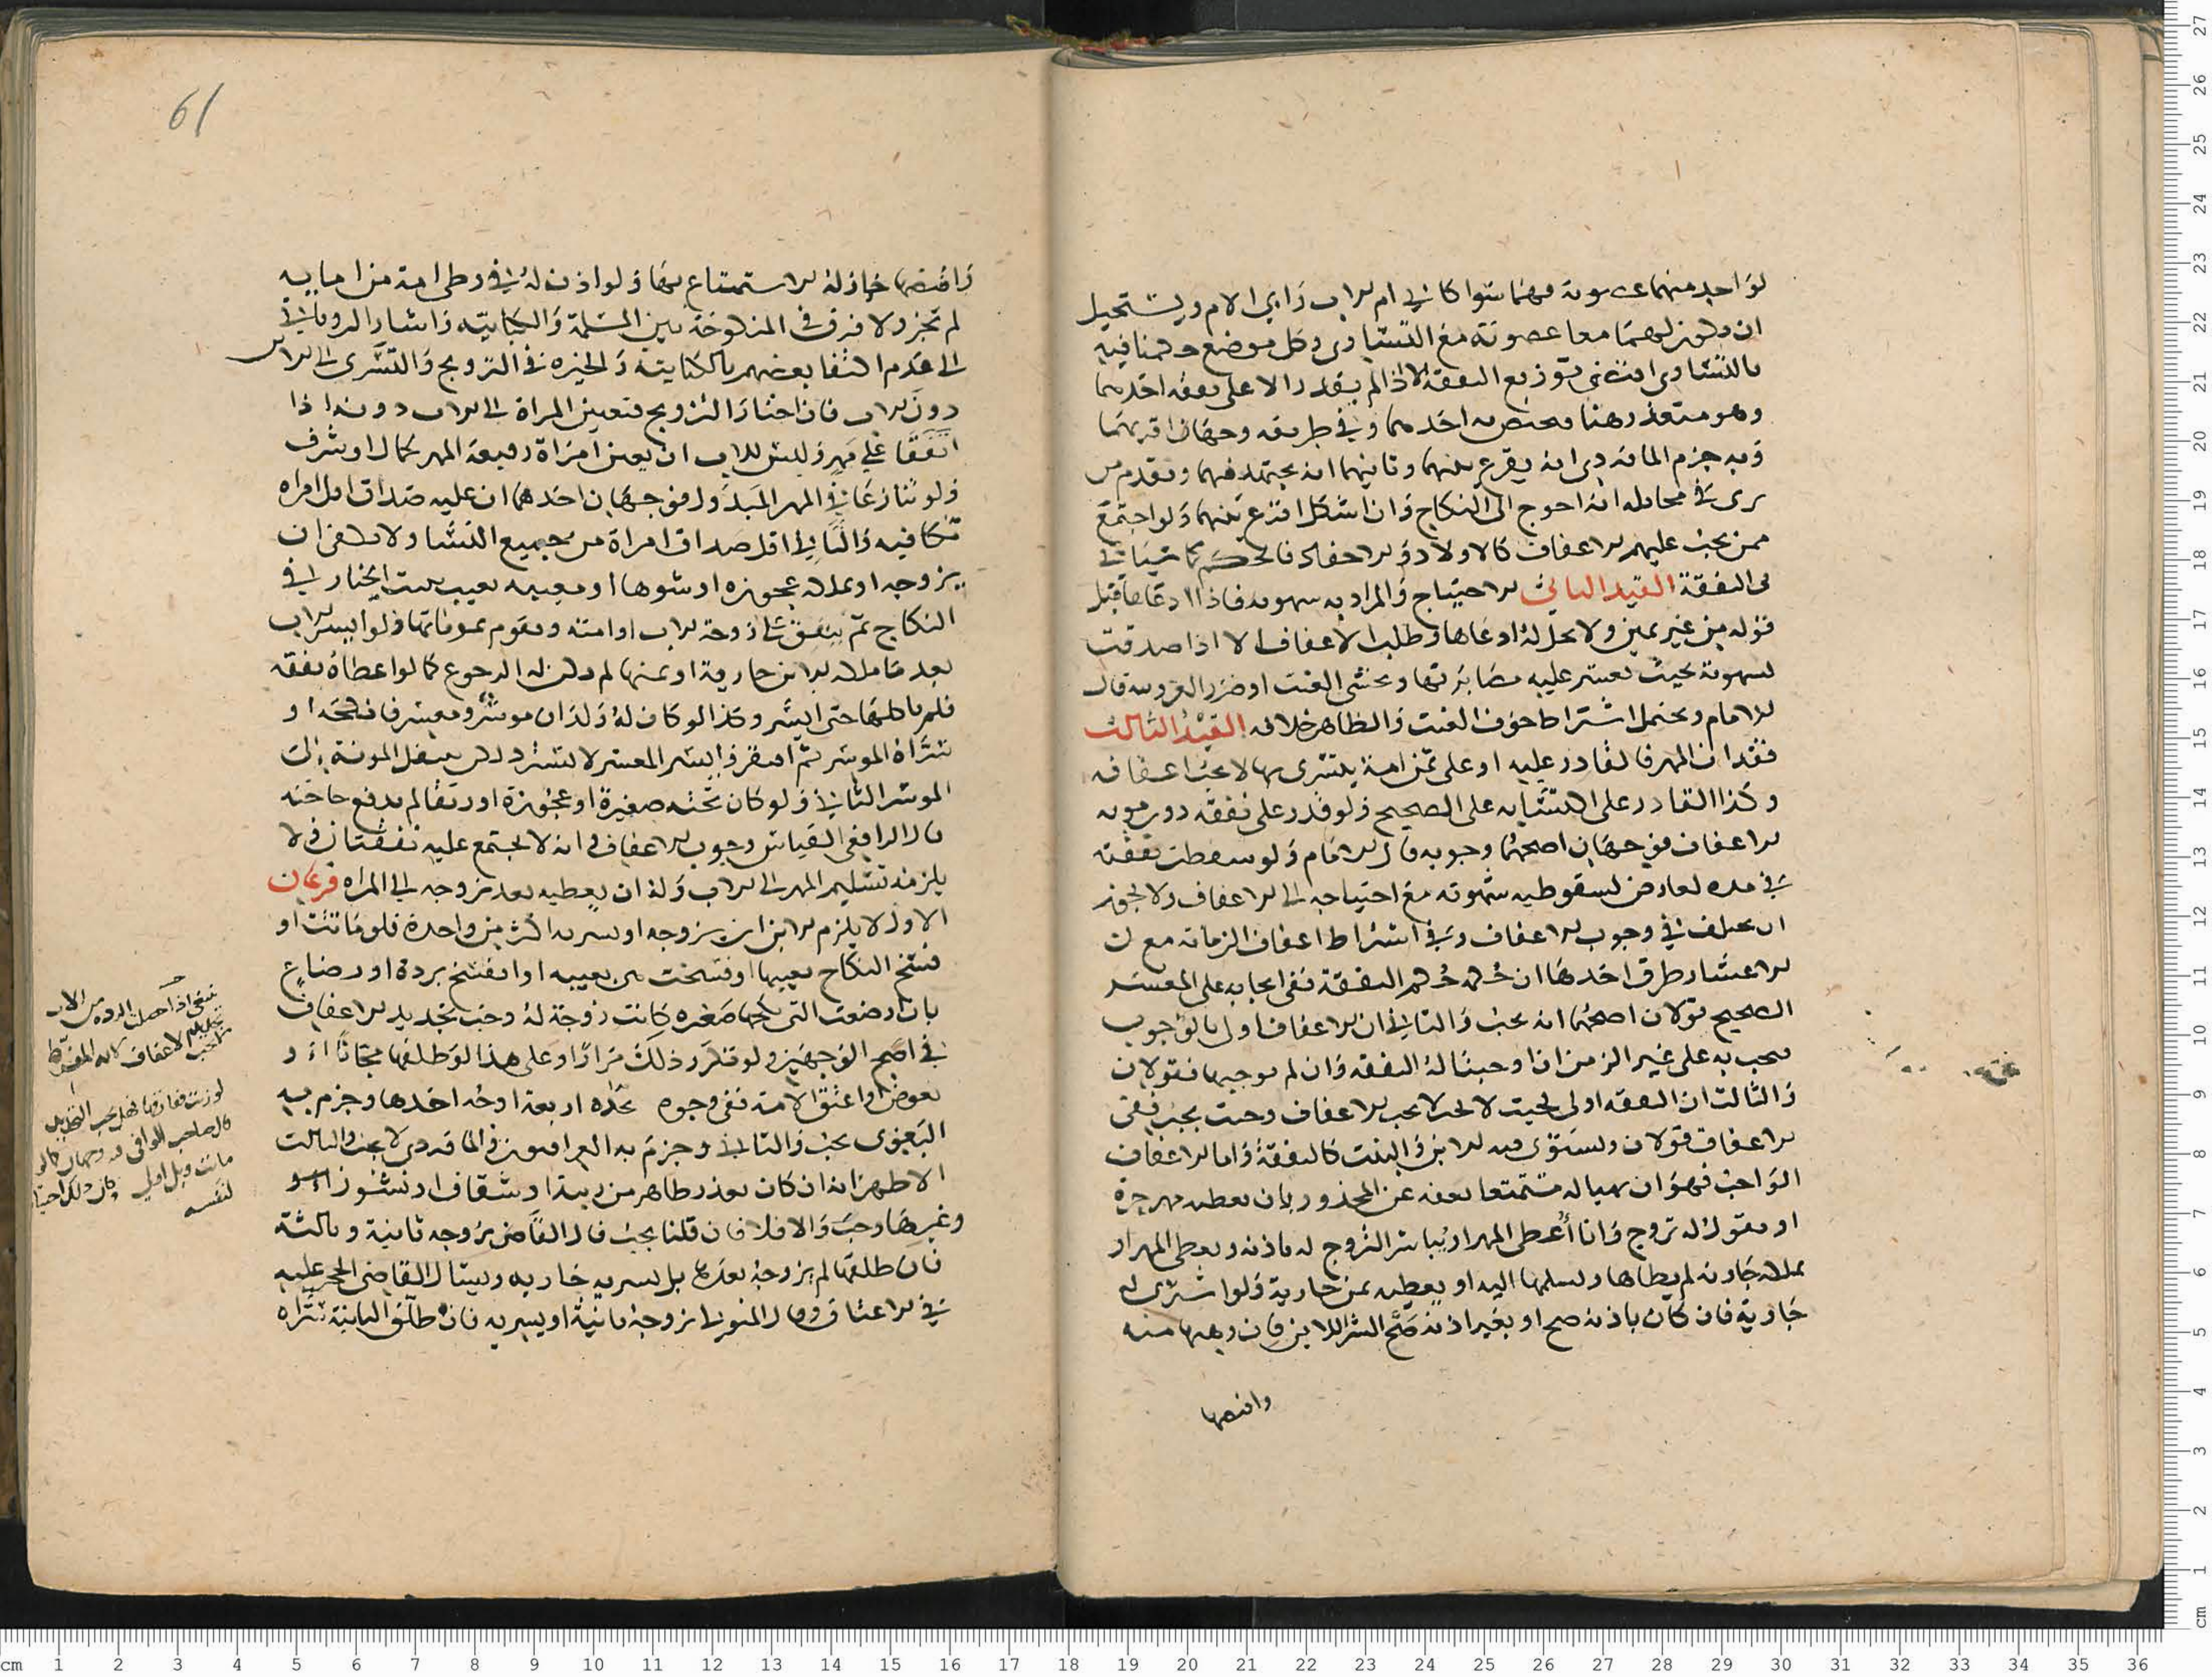 لواحد منهما عصوبة فهما سواء كابي ام الاب وابي الام ويستحيل
ان يكون لهما معا عصوبة مع التساوي وكل موضع حكمنا فيه
بالتساوي اقتضى توزيع النفقة الا اذا لم يقدر الا على نفقة احدهما
وهو متعذر هنا فيختص به احدهما وفي طريقه وجهان اقربهما
وبه جزم الماوردي انه يقرع بينهما وثانيهما انه يجتهد فيهما ويقدم من
يرى في مخايله انه احوج الى النكاح وان اشكل اقرع بينهما ولو اجتمع
ممن يجب عليهم الاعفاف كالاولاد والاحفاد فالحكم كما سياتي
في النفقة القيد الثاني الاحتياج والمراد به شهوته فاذا ادعاها قبل
قوله من غير يمين ولا يحل له ادعاها وطلب الاعفاف الا اذا صدقت
شهوته بحيث تعسر عليه مصابرتها ويخشى العنت او ضرر العزوبة قال
الامام ويحتمل اشتراط خوف العنت والظاهر خلافه القيد الثالث
فقدان المهر فالقادر عليه او على ثمن امة يتسرى بها لا يجب اعفافه
وكذا القادر على اكتسابه على الصحيح ولو قدر على نفقته دون مونة
الاعفاف فوجهان اصحهما وجوبه قال الامام ولو سقطت نفقته
في مدة لعارض لسقوطه شهوته مع احتياجه الى الاعفاف ولا يجوز
ان يختلف في وجوب الاعفاف وفي اشتراط اعفاف الزمانة مع ان
الاعسار طرق احدها ان حكمه حكم النفقة ففي ايجابه على المعسر
الصحيح قولان اصحهما انه يجب والثاني ان الاعفاف اولى بالوجوب
فيجب به على غير الزمن ان اوجبنا له النفقة وان لم نوجبها فقولان
والثالث ان النفقة اولى فحيث لا تجب لا يجب الاعفاف وحيث يجب ففي
الاعفاف قولان ويستوي فيه الابن والبنت كالنفقة واما الاعفاف
الواجب فهو ان يهيا له مستمتعا يعفه عن المحذور بان يعطيه مهر حرة
او يقول له تزوج وانا أعطي المهر او يباشر التزوج له باذنه ويعطي المهر او
يملكه جارية لم يطاها ويسلمها اليه او يعطيه ثمن جارية ولو اشترى له
جارية فان كان باذنه صح او بغير اذنه صح الشرا للابن فان وهبها منه
واقبضها
61
واقبضها جاز له الاستمتاع بها ولو اذن له في وطي امة من امايه
لم تجز ولا فرق في المنكوحة بين المسلمة والكتابية واشار الروياني
الى عدم اكتفا بعضهم بالكتابية والخيرة في التزويج والتسري الى الابن
دون الاب فان اختار التزويج فتعيين المراة الى الاب دونه اذا
اتفقا على مهر وليس للاب ان يعين امراة رفيعة المهر لجمال او شرف
ولو تنازعا في المهر المبذول فوجهان احدهما ان عليه صداق اقل امراه
تكافيه والثاني اقل صداق امراة من جميع النسا ولا يكفي ان
يزوجه او يملكه عجوزه او شوها او معيبه بعيب يثبت الخيار في
النكاح ثم ينفق على زوجة الاب او امته ويقوم بمونتهما ولو ايسر الاب
بعد ما ملكه الابن جارية او ثمنها لم يكن له الرجوع كما لو اعطاه نفقة
فلم ياكلها حتى ايسر وكذا لو كان له ولدان موسر ومعسر فانكحه او
سراه الموسر ثم افتقر وايسر المعسر لا يسترد ذلك بل ينقل المونة الى
الموسر الثاني ولو كان تحته صغيرة او عجوزة او رتقا لم يدفع حاجته
قال الرافعي القياس وجوب الاعفاف وانه لا يجتمع عليه نفقتان ولا
يلزمه تسليم المهر الى الاب وله ان يعطيه بعد تزوجه الى المراه فرعان
الاول لا يلزم الابن ان يزوجه او يسريه اكثر من واحدة فلو ماتت او
فسخ النكاح بعيبها او فسخت هي بعيبه او انفسخ بردة او رضاع
بان ارضعت التي نكحها صغيره كانت زوجة له وجب تجديد الاعفاف
في اصح الوجهين ولو تكرر ذلك مرارا وعلى هذا لو طلقها مجانا او
بعوض او اعتق الامة ففي وجوب تجديده اربعة اوجه احدها وجزم به
البغوي يجب والثاني وجزم به العراقيون والماوردي لا يجب والثالث
الاظهر انه ان كان بعذر ظاهر من ريبة او شقاق او نشوز
وغيرها وجب والا فلا فان قلنا يجب قال القاضي يزوجه ثانية وثالثة
فان طلقها لم يزوجه بعدها بل يسريه جارية ويسال القاضي الحجر عليه
في الاعتاق وقال المتولي يزوجه ثانية او يسريه فان طلق الثانية سراه
ينبغي اذا حصلت الرده من الاب
لا يجب عليهم الاعفاف لانه المفرط
لو زنت ففارقها فهل يجب التجديد
قال صاحب الوافي فيه وجهان كما لو
ماتت وقيل اولى لان ذلك احتياطا
لنفسه